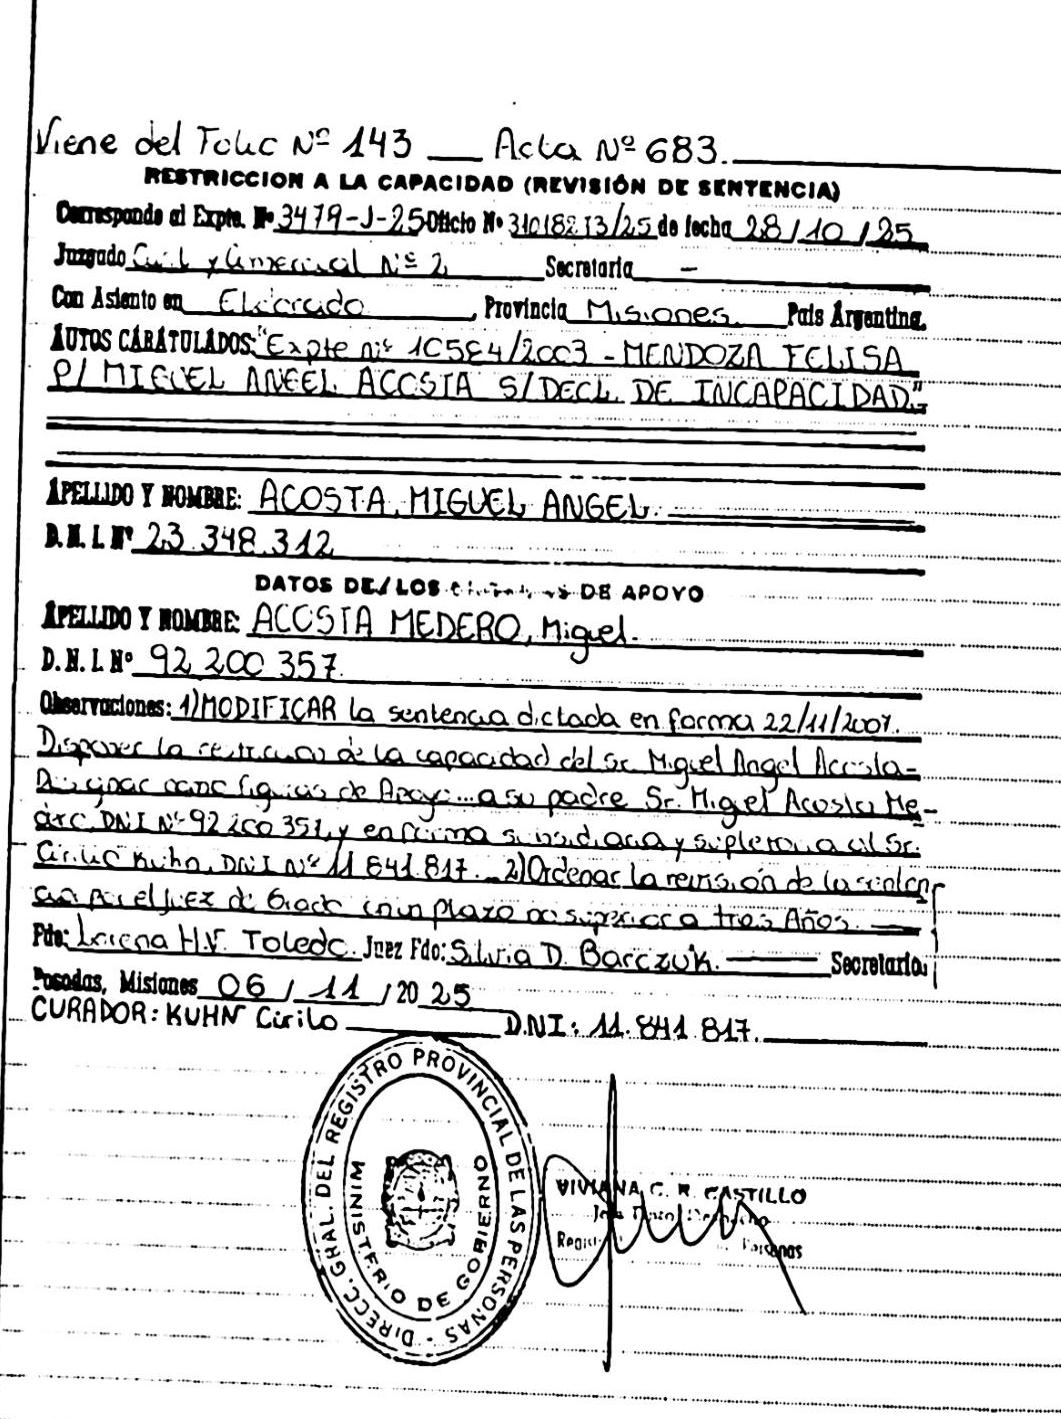 Viene del Folio Nº 143 __ Acta Nº 683.
RESTRICCION A LA CAPACIDAD (REVISIÓN DE SENTENCIA)
Corresponde al Expte. Nº 3479-J-25 Oficio Nº 310/8213/25 de fecha 28/10/25
Juzgado Civil y Comercial Nº 2 Secretaria —
Con Asiento en Eldorado, Provincia Misiones. País Argentina.
AUTOS CARATULADOS: "Expte nº 10584/2003 - MENDOZA FELISA
P/ MIGUEL ANGEL ACOSTA S/DECL. DE INCAPACIDAD"
APELLIDO Y NOMBRE: ACOSTA, MIGUEL ANGEL.
D.N.I. Nº 23.348.312
DATOS DE/LOS DE APOYO
APELLIDO Y NOMBRE: ACOSTA MEDERO, Miguel.
D.N.I. Nº 92.200.357.
Observaciones: 1) MODIFICAR la sentencia dictada en forma 22/11/2007.
Disponer la restriccion de la capacidad del Sr. Miguel Angel Acosta-
Designar como figuras de Apoyo... a su padre Sr. Miguel Acosta Me-
dero DNI Nº 92.200.357, y en forma subsidiaria y supletoria al Sr.
Cirilo Kuhn, DNI Nº 11.841.817. 2) Ordenar la revisión de la senten
cia por el Juez de Grado en un plazo no superior a tres Años.
Fdo: Lorena H.V. Toledo. Juez Fdo: Silvia D. Barczuk. Secretario.
Posadas, Misiones 06 / 11 / 2025
CURADOR: KUHN Cirilo D.N.I: 11.841.817.
DIRECC. GRAL. DEL REGISTRO PROVINCIAL DE LAS PERSONAS -
MINISTERIO DE GOBIERNO
VIVIANA C. R. CASTILLO